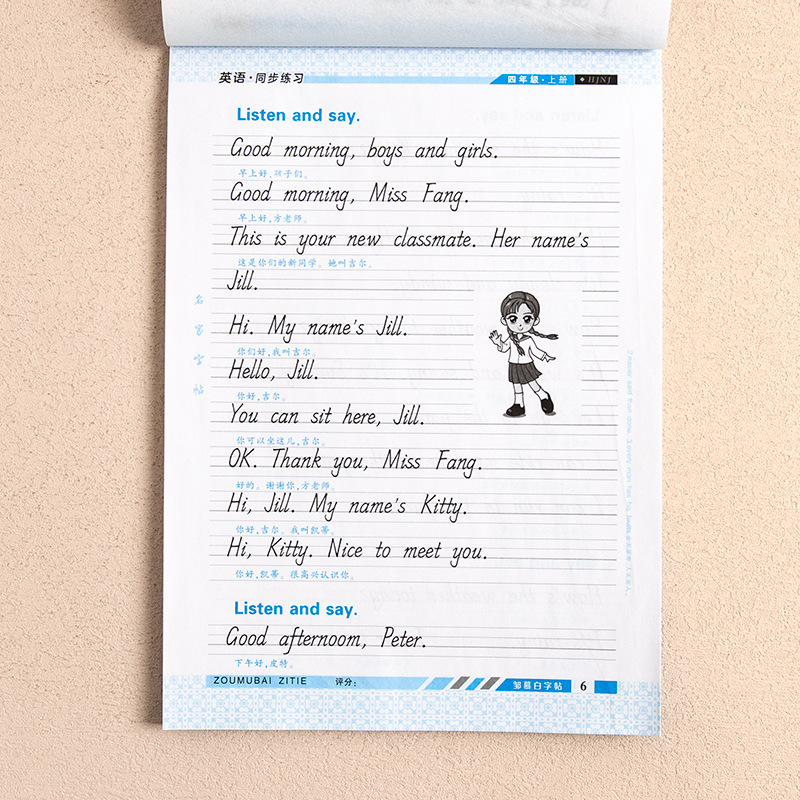 英语·同步练习
四年级·上册 ◆HJNJ
Listen and say.
Good morning, boys and girls.
早上好,孩子们。
Good morning, Miss Fang.
早上好,方老师。
This is your new classmate. Her name's
这是你们的新同学。她叫吉尔。
Jill.
Hi. My name's Jill.
你们好,我叫吉尔。
Hello, Jill.
你好,吉尔。
You can sit here, Jill.
你可以坐这儿,吉尔。
OK. Thank you, Miss Fang.
好的。谢谢你,方老师。
Hi, Jill. My name's Kitty.
你好,吉尔。我叫凯蒂。
Hi, Kitty. Nice to meet you.
你好,凯蒂。很高兴认识你。
名家字帖
Listen and say.
Good afternoon, Peter.
下午好,皮特。
ZOUMUBAI ZITIE 评分:
邹慕白字帖 6